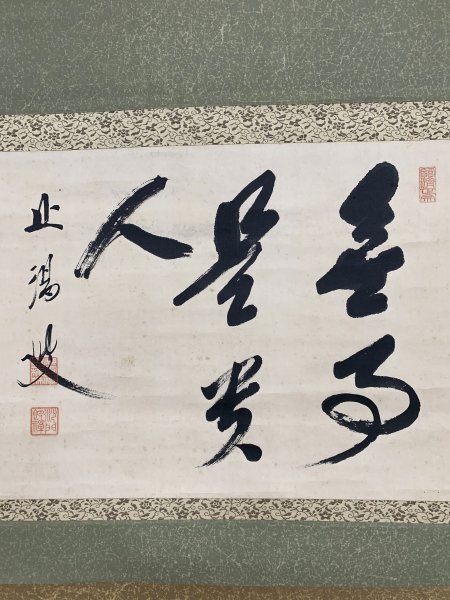 無事
是貴
人
止渇叟